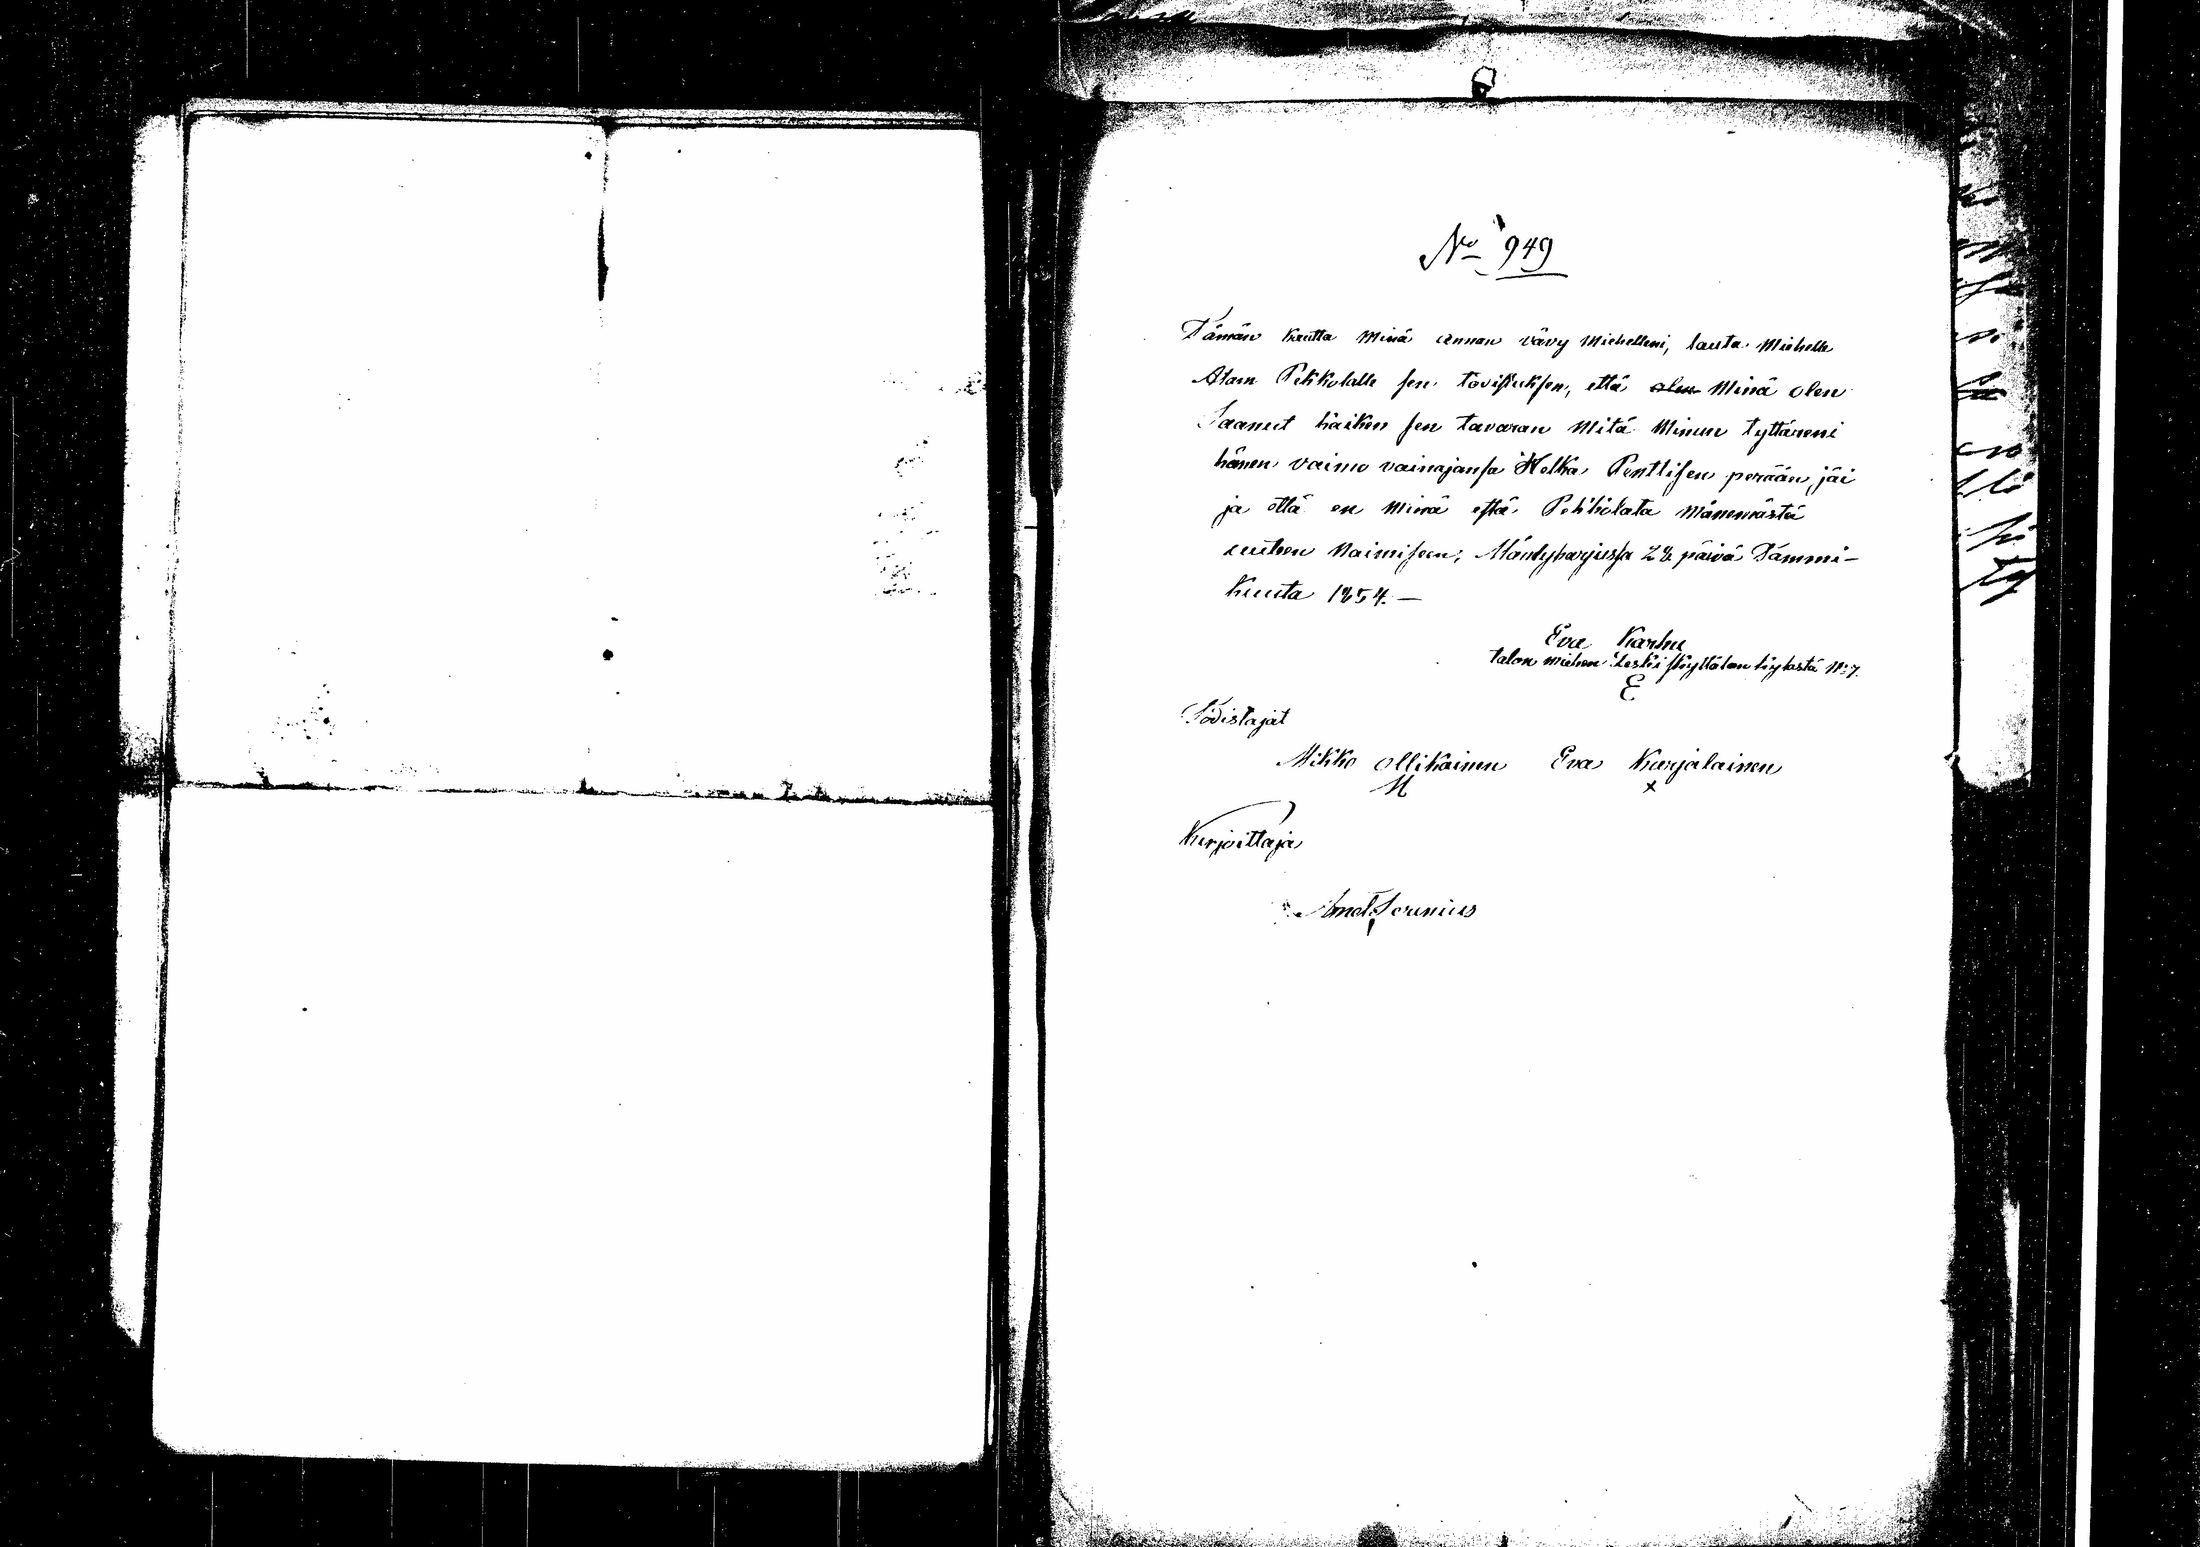 No 949
Tämän kautta minä annan vävy miehelleni, lauta miehelle
Atam Pekkolalle sen tovistuksen, että olen minä olen
Saanut kaiken sen tavaran mitä minun tyttäreni
hänen vaimo vainajansa Helka Penttisen perään jäi
ja että en minä estä Pekkolata mänemästä
uuteen naimiseen; Mäntyharjussa 28 päivä Tammi-
kuuta 1854. —
Eva Karhu
talon miehen Leski kylästä No 7.
E
Todistajat
Mikko Ollikainen Eva Karjalainen
M x
Kirjoittaja